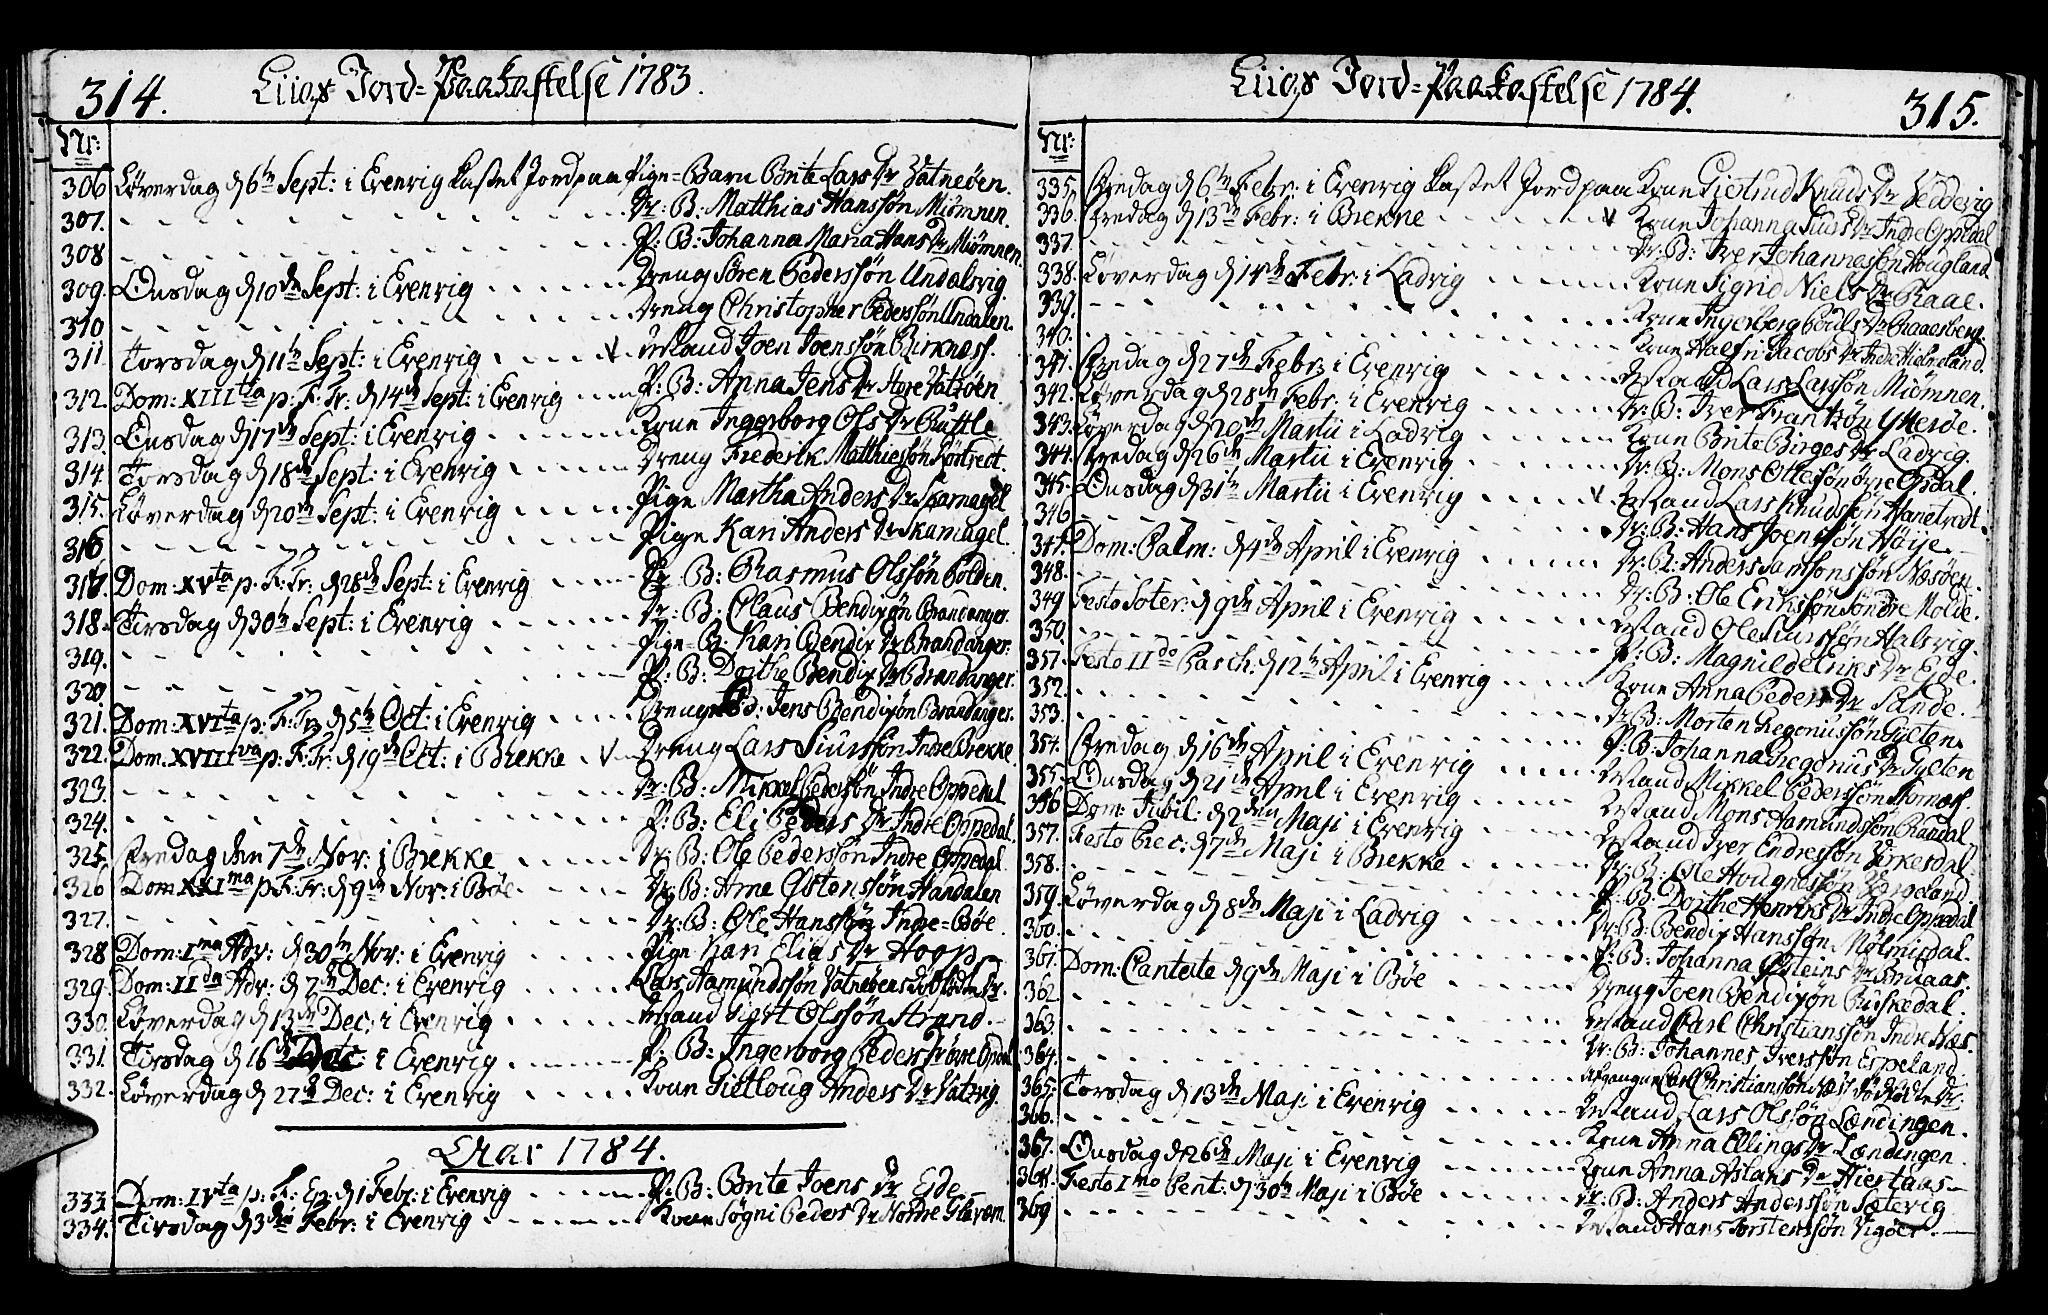 314. Liigs Jord=Paakastelse 1783.
Nr:
306 Løverdag d 6te Sept: i Evenvig kastet Jord paa Pige=Barn Brite Lars Dr Vatneøen.
307. - - - Dr: B: Matthias Hanssøn Miømnen.
308 - - - P: B: Johanna Maria Hans Dr Miømnen.
309. Onsdag d 10de Sept: i Evenvig - - - Dreng Sören Pederssøn Undalsvig.
310 - - - Dreng Christopher Pederssøn Undalen.
311. Torsdag d 11te Sept: i Evenvig - - - Mand Joen Joenssøn Birknes.
312. Dom: XIIIta p: F: Tr: d 14de Sept: i Evenvig - - - P: B: Anna Jens Dr Store Vatsøen.
313. Onsdag d 17de Sept: i Evenvig - - - Kone Ingerborg Ols Dr Ruttle
314. Torsdag d 18de Sept: i Evenvig - - - Dreng Frederik Matthiessøn
315. Løverdag d 20de Sept: i Evenvig - - - Pige Martha Anders Dr Skarnagel
316 - - - Pige Kari Anders Dr Skarnagel.
317. Dom: XVta p: F: Tr: d 28de Sept: i Evenvig - - - Dr: B: Rasmus Olssøn Polden.
318. Tirsdag d 30te Sept: i Evenvig - - - Dr: B: Claus Bendixøn Brandanger.
319. - - - Pige=B: Kari Bendix Dr Brandanger.
320 - - - P: B: Dorthe Bendix Dr Brandanger.
321. Dom: XVIta p: F: Tr: d 5te Oct: i Evenvig - - - Dreng B: Jens Bendixøn Brandanger.
322. Dom: XVIIIva p: F: Tr: d 19de Oct: i Brekke - - - Dreng Lars Siurssøn Indre Brekke
323. - - - Dr: B: Mikkel Pederssøn Indre Oppedal
324. - - - P: B: Eli Peders Dr Indre Oppedal.
325. Fredag den 7de Nov: i Brekke - - - Dr: B: Ole Pederssøn Indre Oppedal
326 Dom XXIma p F: Tr: d 9de Nov: i Bøe - - - Dr: B: Arne Østenssøn Handalen
327. - - - Dr: B: Ole Hanssøn Indre=Bøe.
328 Dom: Ima Adv: d 30te Nov: i Evenvig - - - Pige Kari Elias Dr Hoop
329. Dom: IIda Adv: d 7de Dec: i Evenvig - - - Lars Hamundssøn Vatneøens dødfødte Dr.
330. Løverdag d 13de Dec: i Evenvig - - - Mand Siert Olssøn Strand.
331. Tirsdag d 16de Dec: i Evenvig - - - P: B: Ingerborg Peders Dr Øvre Opdal
332. Løverdag d 27de Dec: i Evenvig - - - Kone Gietloug Anders Dr Vatvig
Aar 1784.
333. Dom: IVta p: F: Ep: d 1 Febr: i Evenvig - - - P: B: Brite Joens Dr Eide
334. Tirsdag d 3die Febr: i Evenvig - - - Kone Søgni Peders Dr Nordre Glavæm.
Liigs Jord=Paakastelse 1784. 315.
Nr:
335. Fredag d 6te Febr: i Evenvig kastet Jord paa Kone Giertrud Knuds Dr Heddevig
336. Fredag d 13de Febr: i Brekke - - - Kone Johanna Siurs Dr Indre Oppedal
337. - - - Dr: B: Iver Johannessøn Hougland
338. Løverdag d 14de Febr: i Ladvig - - - Kone Sigrid Niels Dr Raae.
339. - - - Kone Ingerbierg Pouls Dr Raaesberg.
340. - - - Kone Halfri Jacobs Dr Indre Hielmeland.
341. Fredag d 27de Febr: i Evenvig - - - Mand Lars Larssøn Miømnen.
342. Løverdag d 28de Febr: i Evenvig - - - Dr: B: Iver Frantzøn Ytterøe.
343. Løverdag d 20de Martii i Ladvig - - - Kone Brite Birges Dr Ladvig.
344. Fredag d 26de Martii i Evenvig - - - Dr: B: Mons Ottesøn Øvre Opdal.
345. Onsdag d 31te Martii i Evenvig - - - Mand Lars Knudssøn Hanetvedt.
346 - - - Dr: B: Hans Joenssøn Høije.
347. Dom: Palm: d 4de April i Evenvig - - - Dr: B: Anders Samsonssøn Næsøen.
348. - - - Dr: B: Ole Erikssøn Søndre Molde.
349 Festo Soter: d 9de April i Evenvig - - - Mand Ole Siurssøn Halsvig.
350. - - - P: B: Magnilde Eriks Dr Eide.
351. Festo IIdo Pasch: d 12te April i Evenvig - - - Kone Anna Peders Dr Sande.
352. - - - Dr B: Morten Gregoriussøn Gylten.
353. - - - P: B: Johanna Gregorius Dr Gylten
354. Fredag d 16de April i Evenvig - - - Mand Mikkel Pederssøn
355. Onsdag d 21de April i Evenvig - - - Mand Mons Hamundssøn Randal
356 Dom: Jubil: d 2den Maji i Evenvig - - - Mand Iver Endressøn Virkesdal
357. Festo Prec: d 7de Maji i Brekke - - - Dr: B: Ole Hougnessøn
358. - - - P: B: Dorthe Henriks Dr Indre Oppedal
359. Løverdag d 8de Maji i Ladvig - - - Dr: B: Bendix Hanssøn Mølmisdal.
360. - - - P: B: Johanna Østeins Dr Smiaas.
361. Dom: Cantate d 9de Maji i Bøe - - - Dreng Joen Bendixøn Buskedal.
362 - - - Mand Carl Christianssøn Indre Næs.
363. - - - Dr: B: Johannes Iverssøn Espeland.
364. - - - Afgangne Carl Christianssøn Næs' dødfødte Dr
365. Torsdag d 13de Maji i Evenvig - - - Mand Lars Olssøn Lændingen.
366. - - - Kone Anna Ellings Dr Lændingen
367. Onsdag d 26de Maji i Evenvig - - - Kone Anna Aslans Dr Hiertaas
368. Festo Imo Pent: d 30te Maji i Bøe - - - Dr: B: Anders Anderssøn Sætevig
369 - - - Mand Hans Torstenssøn Vigøer.